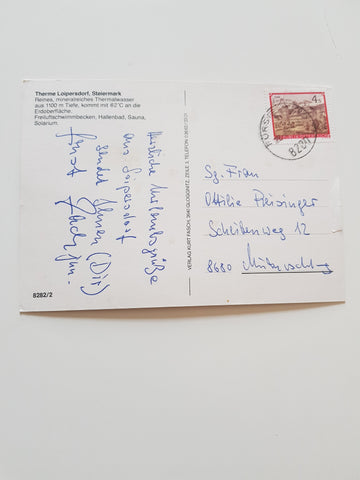 Therme Loipersdorf, Steiermark
Reines, mineralreiches Thermalwasser
aus 1100 m Tiefe, kommt mit 62°C an die
Erdoberfläche.
Freiluftschwimmbecken, Hallenbad, Sauna,
Solarium.
Herzliche Urlaubsgrüße
aus Loipersdorf
sendet Ihnen (Dir)
8282/2
VERLAG KURT FASCH, 2640 GLOGGNITZ, ZEILE 3, TELEFON
4 S
8280
Sg. Frau
Ottilie Preisinger
Scheibenweg 12
8680 Mürzzuschlag